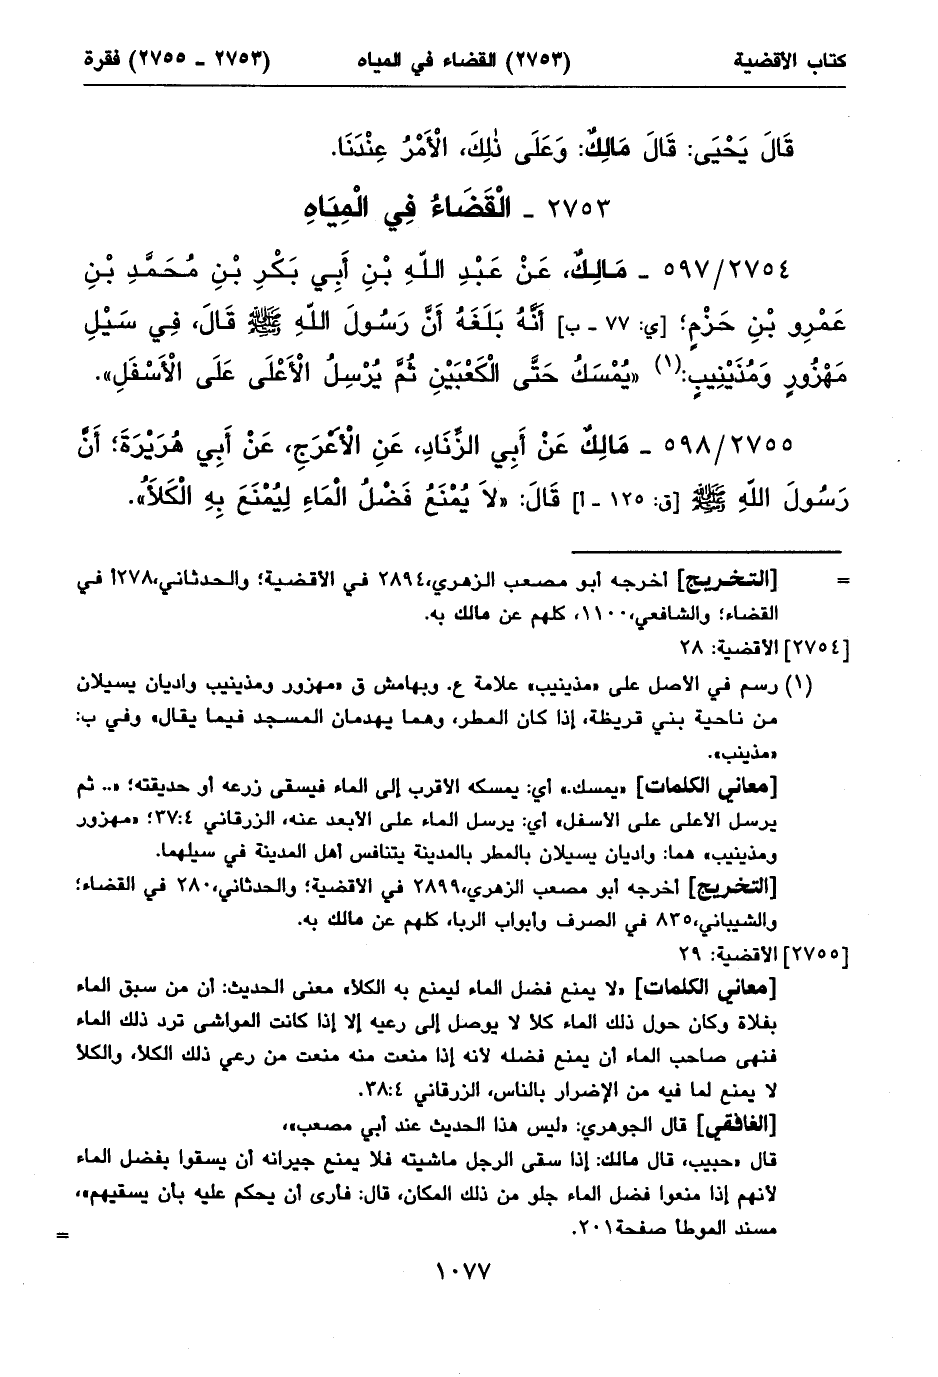 كتاب الأقضية (٢٧٥٣) القضاء في المياه (٢٧٥٣ ـ ٢٧٥٥) فقرة
قَالَ يَحْيَى: قَالَ مَالِكٌ: وَعَلَى ذٰلِكَ، الْأَمْرُ عِنْدَنَا.
٢٧٥٣ ـ الْقَضَاءُ فِي الْمِيَاهِ
٥٩٧/٢٧٥٤ ـ مَالِكٌ، عَنْ عَبْدِ اللّهِ بْنِ أَبِي بَكْرِ بْنِ مُحَمَّدِ بْنِ
عَمْرِو بْنِ حَزْمٍ؛ [ي: ٧٧ ـ ب] أَنَّهُ بَلَغَهُ أَنَّ رَسُولَ اللّهِ ﷺ قَالَ، فِي سَيْلِ
مَهْزُورٍ وَمُذَيْنِيبٍ:(١) «يُمْسَكُ حَتَّى الْكَعْبَيْنِ ثُمَّ يُرْسِلُ الْأَعْلَى عَلَى الْأَسْفَلِ».
٥٩٨/٢٧٥٥ ـ مَالِكٌ عَنْ أَبِي الزِّنَادِ، عَنِ الْأَعْرَجِ، عَنْ أَبِي هُرَيْرَةَ؛ أَنَّ
رَسُولَ اللّهِ ﷺ [ق: ١٢٥ ـ أ] قَالَ: «لاَ يُمْنَعُ فَضْلُ الْمَاءِ لِيُمْنَعَ بِهِ الْكَلَأُ».
= [التخريج] أخرجه أبو مصعب الزهري، ٢٨٩٤ في الأقضية؛ والحدثاني، ٢٧٨أ في
القضاء؛ والشافعي، ١١٠٠، كلهم عن مالك به.
[٢٧٥٤] الأقضية: ٢٨
(١) رسم في الأصل على «مذينيب» علامة ع. وبهامش ق «مهزور ومذينيب واديان يسيلان
من ناحية بني قريظة، إذا كان المطر، وهما يهدمان المسجد فيما يقال» وفي ب:
«مذينب».
[معاني الكلمات] «يمسك.» أي: يمسكه الأقرب إلى الماء فيسقى زرعه أو حديقته؛ «.. ثم
يرسل الأعلى على الأسفل» أي: يرسل الماء على الأبعد عنه، الزرقاني ٣٧:٤؛ «مهزور
ومذينيب» هما: واديان يسيلان بالمطر بالمدينة يتنافس أهل المدينة في سيلهما.
[التخريج] أخرجه أبو مصعب الزهري، ٢٨٩٩ في الأقضية؛ والحدثاني، ٢٨٠ في القضاء؛
والشيباني، ٨٣٥ في الصرف وأبواب الربا، كلهم عن مالك به.
[٢٧٥٥] الأقضية: ٢٩
[معاني الكلمات] «لا يمنع فضل الماء ليمنع به الكلأ» معنى الحديث: أن من سبق الماء
بفلاة وكان حول ذلك الماء كلأ لا يوصل إلى رعيه إلا إذا كانت المواشى ترد ذلك الماء
فنهى صاحب الماء أن يمنع فضله لأنه إذا منعت منه منعت من رعي ذلك الكلأ، والكلأ
لا يمنع لما فيه من الإضرار بالناس، الزرقاني ٣٨:٤.
[الغافقي] قال الجوهري: «ليس هذا الحديث عند أبي مصعب»،
قال «حبيب، قال مالك: إذا سقى الرجل ماشيته فلا يمنع جيرانه أن يسقوا بفضل الماء
لأنهم إذا منعوا فضل الماء جلو من ذلك المكان، قال: فأرى أن يحكم عليه بأن يسقيهم»،
مسند الموطأ صفحة ٢٠١.
=
١٠٧٧